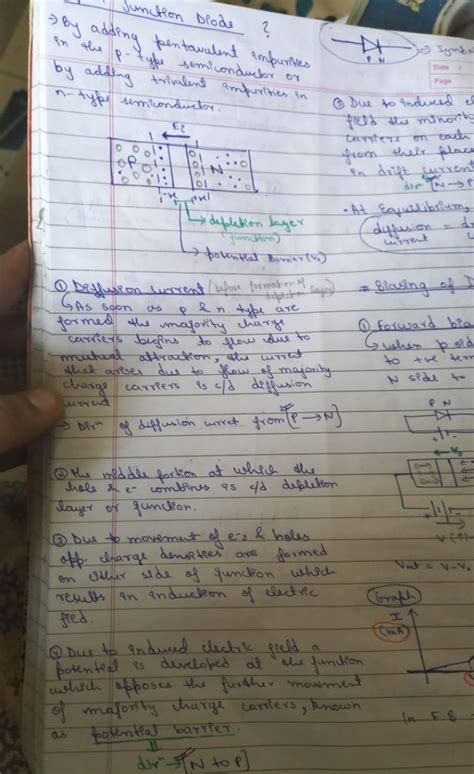 Junction Diode ?
→ By adding pentavalent impurities
in the p-type semiconductor or
by adding trivalent impurities in
n-type semiconductor.
Ei
P
N
→ depletion layer
(junction)
→ potential barrier (V₀)
① Diffusion current (before formation of
depletion layer)
↳ As soon as p & n type are
formed the majority charge
carriers begins to flow due to
mutual attraction, the current
that arises due to flow of majority
charge carriers is c/d diffusion
current
→ Dirⁿ of diffusion curret from [P → N]
② The middle portion at which the
hole & e- combines is c/d depletion
layer or junction.
③ Due to movement of e-s & holes
opp. charge densities are formed
on either side of junction which
results in induction of electric
field.
④ Due to induced electric field a
potential is developed at the junction
which opposes the further movement
of majority charge carriers, known
as potential barrier.
dirⁿ → [N to P]
P N
→ Symbol
Date
Page
⑤ Due to induced
field the minority
carriers on each
from their place
in drift current
dirⁿ [N → P
• At Equilibrium,
diffusion =
current
* Biasing of
① Forward bias
↳ when p side
to +ve
N side to
P N
V₀
V
Vnet = V - V₀
Graph
I
(mA)
In F.B